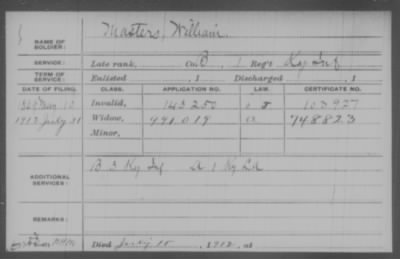 NAME OF SOLDIER: Masters, William
SERVICE: Late rank, Co. B, 1 Reg't Ky Inf
TERM OF SERVICE: Enlisted , 1 Discharged , 1
DATE OF FILING. CLASS. APPLICATION NO. LAW. CERTIFICATE NO.
1869 Mar 10 Invalid, 143250 103927
1912 July 31 Widow, 991019 a 748823
Minor,
ADDITIONAL SERVICES: B 3 Ky Inf A 1 Ky
REMARKS:
Died July 15, 1912, at